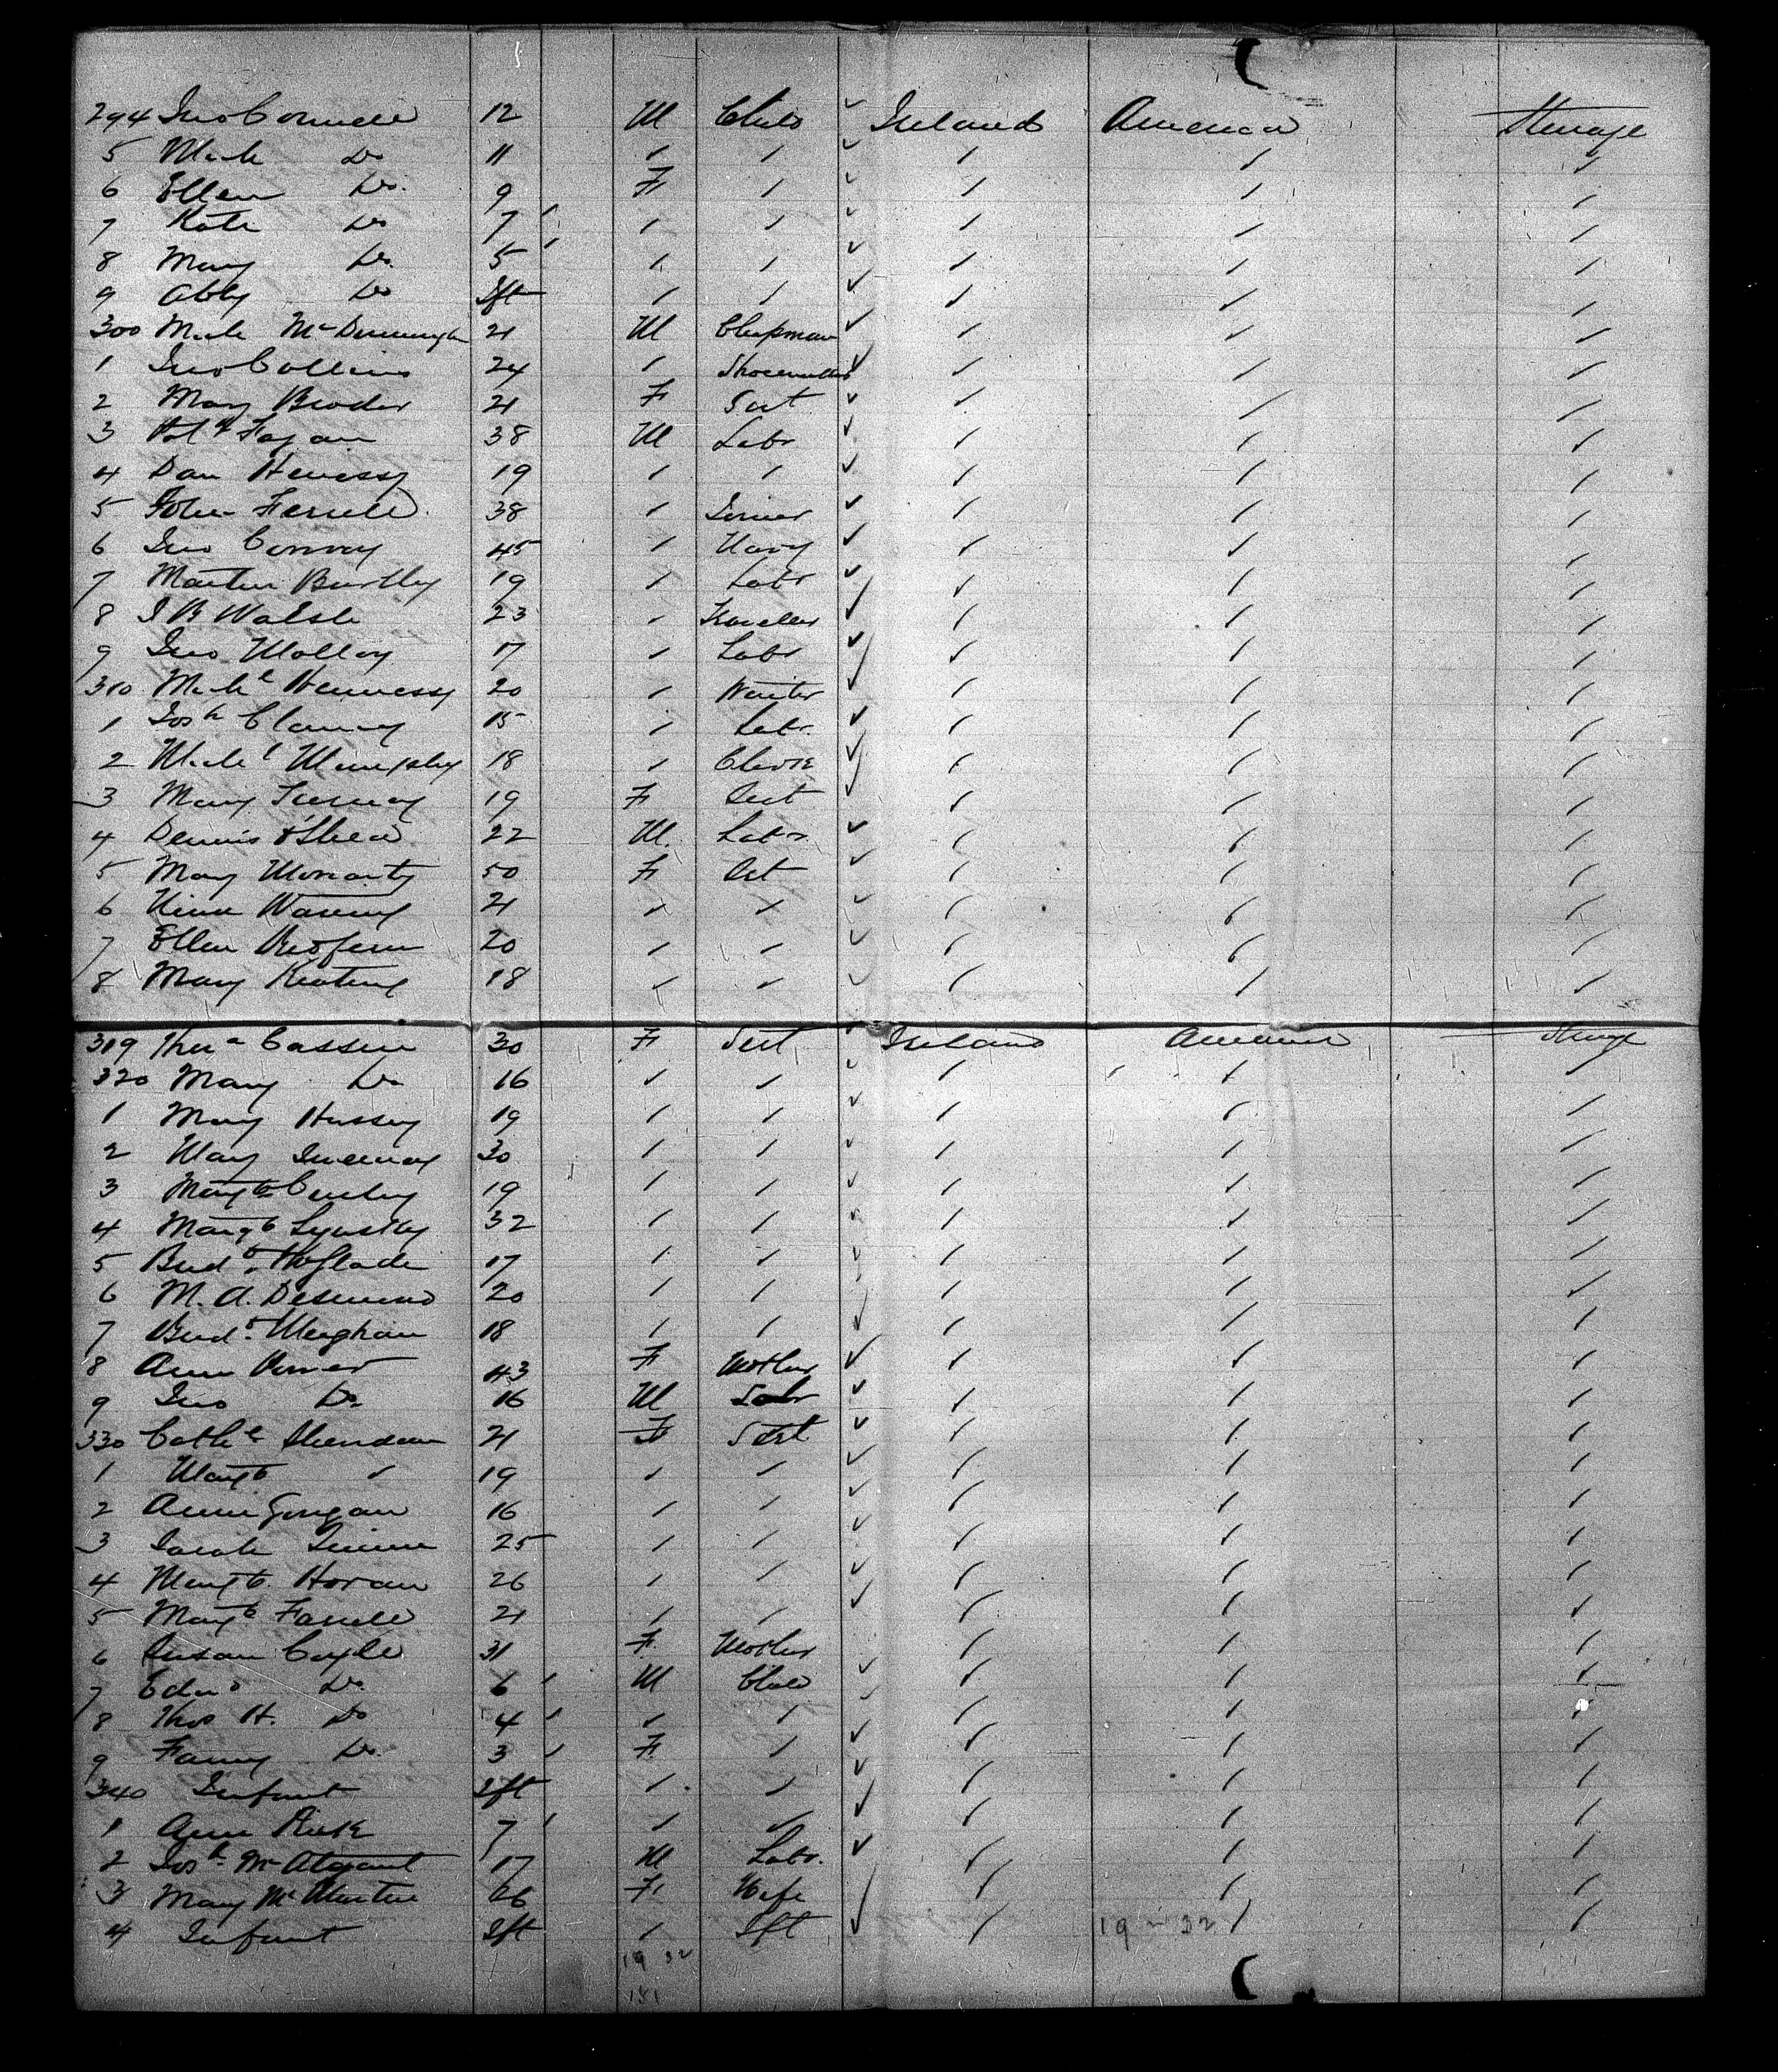 294 Jno Connell 12 M Child Ireland America Steerage
5 Mich Do 11 / / / / /
6 Ellen Do. 9 F / / / /
7 Kate Do 7 / / / / /
8 Mary Do. 5 / / / / /
9 Abby Do Ift / / / / /
300 Mich 21 M Chapman / / /
1 Jno Collins 24 / Shoemaker / / /
2 Mary Broder 21 F Sert / / /
3 Fagan 38 M Labr / / /
4 Dan Henessy 19 / / / / /
5 John Ferrell 38 / / / /
6 Jno Conway 45 / Navy / / /
7 Martin Burtley 19 / Labr / / /
8 J B Walsh 23 / Traveller / / /
9 Jno Molloy 17 / Labr / / /
310 Michl Hennessy 20 / Waiter / / /
1 Josh Clancy 15 / Labr. / / /
2 Michl Murphy 18 / Clerk / / /
3 Mary 19 F Sert / / /
4 Dennis O'Shea 22 M. Labr. / / /
5 Mary Moriarty 50 F Sert / / /
6 21 / / / / /
7 Ellen Redfern 20 / / / / /
8 Mary Keating 18 / / / / /
319 30 F Sert Ireland America Steerage
320 Mary Do 16 / / / / /
1 Mary Hussey 19 / / / / /
2 Mary 30 / / / / /
3 Margt 19 / / / / /
4 Margt 32 / / / / /
5 Bridt 17 / / / / /
6 M. A. Desmond 20 / / / / /
7 Bridt Meighan 18 / / / / /
8 Ann 43 F Mother / / /
9 Jno Do 16 M Labr / / /
330 Cathe Sheridan 21 F Sert / / /
1 Margt / 19 / / / / /
2 Annie 16 / / / / /
3 Sarah 25 / / / / /
4 Margt. Horan 26 / / / / /
5 Margt Farrell 21 / / / / /
6 Susan Coyle 31 F. Mother / / /
7 Edwd Do. 6 M Child / / /
8 Thos H. Do 4 / / / / /
9 Fanny Do. 3 F / / / /
340 Infant Ift / / / / /
1 Ann Kirk 7 / / / / /
2 Josh 17 M Labr. / / /
3 Mary 26 F Wife / / /
4 Infant Ift / Ift / 19 - 32 / /
19 32
151